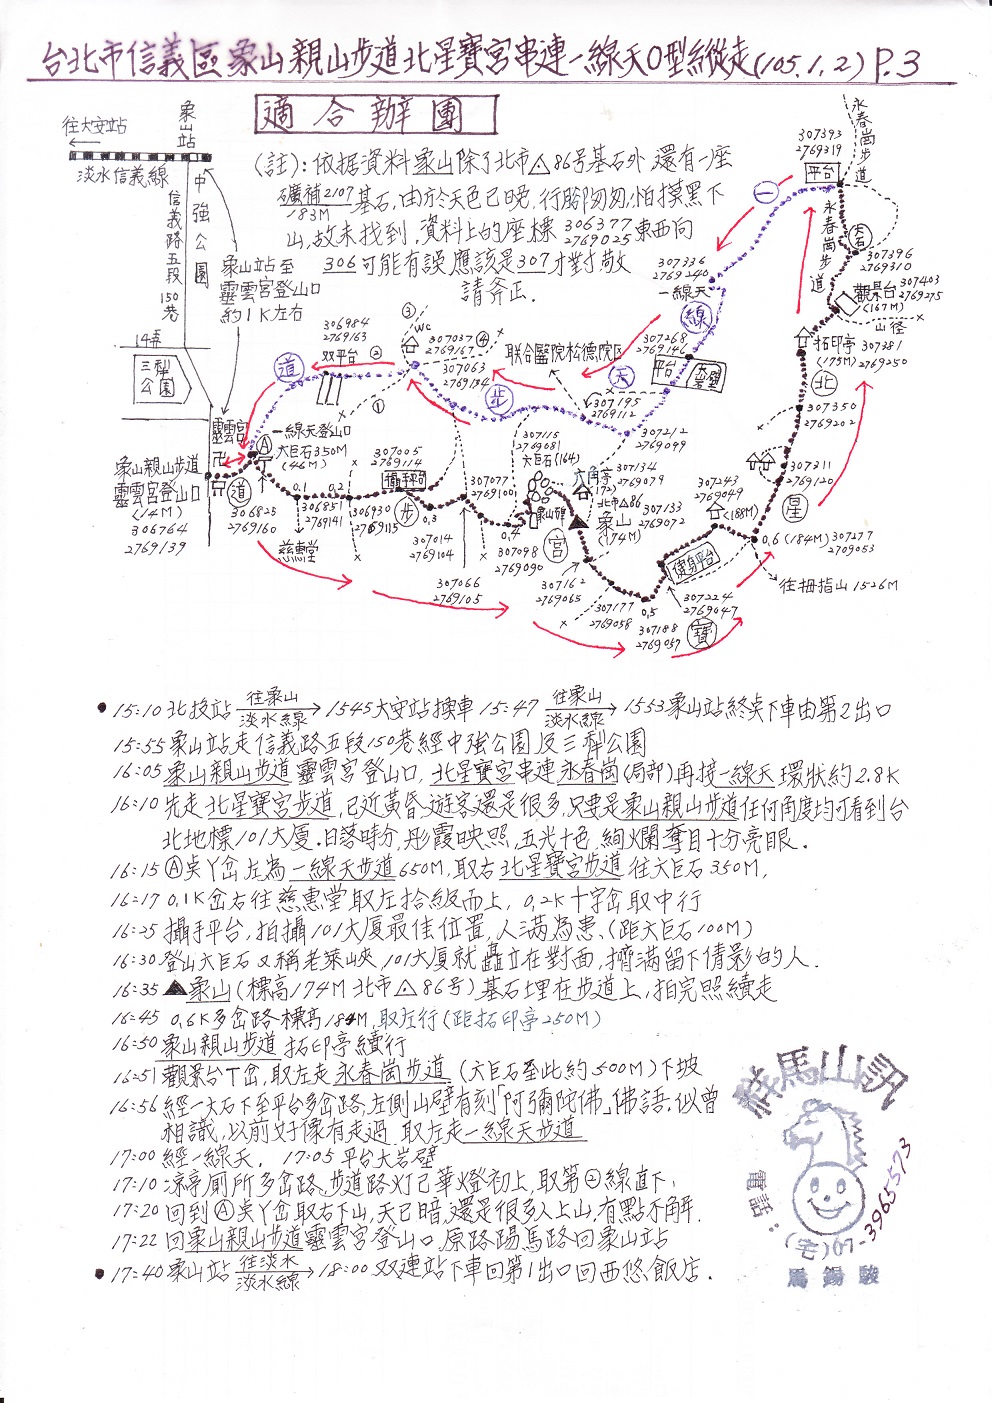 台北市信義區象山親山步道北星寶宮串連一線天O型縱走(105.1.2) P.3
適合辦團
(註):依据資料象山除了北市△86号基石外還有一座
礦補2107基石,由於天色已晚,行腳匆匆,怕摸黑下
183M
山,故未找到,資料上的座標 306377 東西向
2769025
306可能有誤應該是307才對敬
請斧正.
往大安站
象山站
淡水信義線
信義路五段150巷
中強公園
象山站至
靈雲宮登山口
約1K左右
14弄
三犁
公園
靈雲宮
卍
象山親山步道
靈雲宮登山口
(14M)
306764
2769139
道
306825
2769160
A
一線天登山口
大巨石350M
(46M)
道
306984
2769163
双平台
②
①
③
WC
307037
2769167
④
307063
2769134
步
联合醫院松德院区
天
307195
2769112
307212
2769099
307268
2769146
平台
線
307336
2769240
一線天
一
307393
2769319
平台
永春崗步道
永春崗步道
大石
307396
2769310
307403
觀景台 2769275
(167M)
山徑
拓印亭 307381
(175M) 2769250
北
307350
2769202
307311
2769120
星
307243
2769049
(188M)
0.6 (184M) 307277
2709053
往拇指山1526M
健身平台
307224
2769047
寶
307188
2769057
0.5
307177
2769058
307162
2769065
宮
象山
(174M)
307133
2769072
北市△86
六角亭
(172)
307134
2769079
307115
2769081
大巨石(164)
象山碑
307098
2769090
0.4
307077
2769100
307066
2769105
307014
2769104
0.3
步
攝手平台
307005
2769114
306930
2769115
0.2
306851
2769141
0.1
慈惠堂
● 15:10 北投站 往象山 淡水線 → 1545大安站換車 15:47 往象山 淡水線 → 1553象山站終点下車由第2出口
15:55 象山站走信義路五段150巷經中強公園及三犁公園
16:05 象山親山步道靈雲宮登山口,北星寶宮串連永春崗(局部)再接一線天環狀約2.8K
16:10 先走北星寶宮步道,已近黃昏,遊客還是很多,只要是象山親山步道任何角度均可看到台
北地標101大厦.日落時分,彤霞映照,五光十色,絢爛奪目十分亮眼.
16:15 Ⓐ吳丫岔左為一線天步道650M,取右北星寶宮步道往大巨石350M,
16:17 0.1K岔右往慈惠堂取左拾級而上,0.2K十字岔取中行
16:25 攝手平台,拍攝101大厦最佳位置,人滿為患、(距大巨石100M)
16:30 登山大巨石又稱老萊峽,101大厦就矗立在對面,擠滿留下倩影的人.
16:35 ▲象山(標高174M北市△86号)基石埋在步道上,拍完照續走
16:45 0.6K多岔路標高184M,取左行(距拓印亭250M)
16:50 象山親山步道拓印亭續行
16:51 觀景台丁岔,取左走永春崗步道(大巨石至此約500M)下坡
16:56 經一大石下至平台多岔路,左側山壁有刻「阿彌陀佛」佛語,似曾
相識,以前好像有走過 取左走一線天步道
17:00 經一線天, 17:05 平台大岩壁
17:10 涼亭厠所多岔路,步道路灯已華燈初上,取第④線直下,
17:20 回到Ⓐ吳丫岔取右下山,天已暗,還是很多人上山,有點不解.
17:22 回象山親山步道靈雲宮登山口,原路踢馬路回象山站
● 17:40 象山站 往淡水 淡水線 → 18:00 双連站下車回第1出口回西悠飯店.
群馬山訊
電話:
(宅)07-3965573
馬錫駿